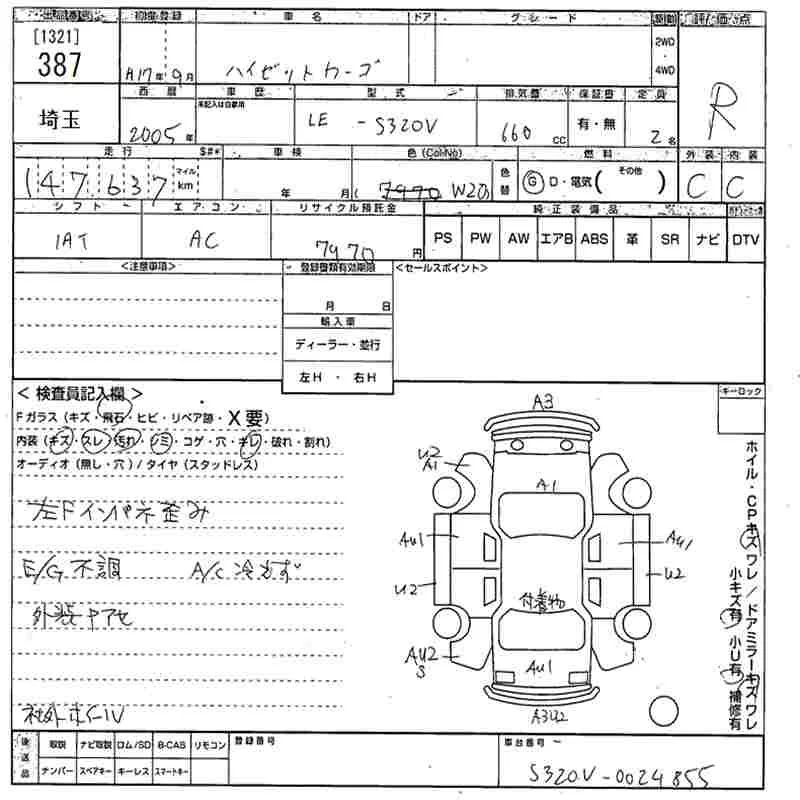 出品番号 初度登録 車名 ドア グレード 駆動 評価点
[1321]
387
H17年9月 ハイゼットカーゴ 2WD ・ 4WD R
埼玉
西暦 車歴 型式 排気量 保証書 定員
未記入は自家用
2005年 LE -S320V 660cc 有・無 2名
走行 $#* 車検 色(Col-No) 燃料 外装 内装
147,637 マイル km 年 月( W20 色替 Ⓖ・D・電気( その他 ) C C
シフト エアコン リサイクル預託金 純正装備品
IAT AC 7970円 PS PW AW エアB ABS 革 SR ナビ DTV
<注意事項> 登録書類有効期限 <セールスポイント>
月 日
輸入車
ディーラー・並行
左H ・ 右H
<検査員記入欄> キーロック
Fガラス(キズ・飛石・ヒビ・リペア跡・X要)
内装(キズ・スレ・汚れ・シミ・コゲ・穴・キレ・破れ・割れ)
オーディオ(無し・穴)/タイヤ(スタッドレス)
左Fインパネ歪み
E/G不調 A/C冷えず
外装ヤアセ
社外ホイール
A3
U2
A1
A1
AU1
AU1
U2
U2
付着物
AU2
S
AU1
A3U2
ホイル・CPキズワレ/ドアミラーキズワレ
小キズ有 小U有 補修有
後送品 取説 ナビ取説 ロム/SD B-CAS リモコン 登録番号 車台番号
ナンバー スペアキー キーレス スマートキー
S320V-0024855